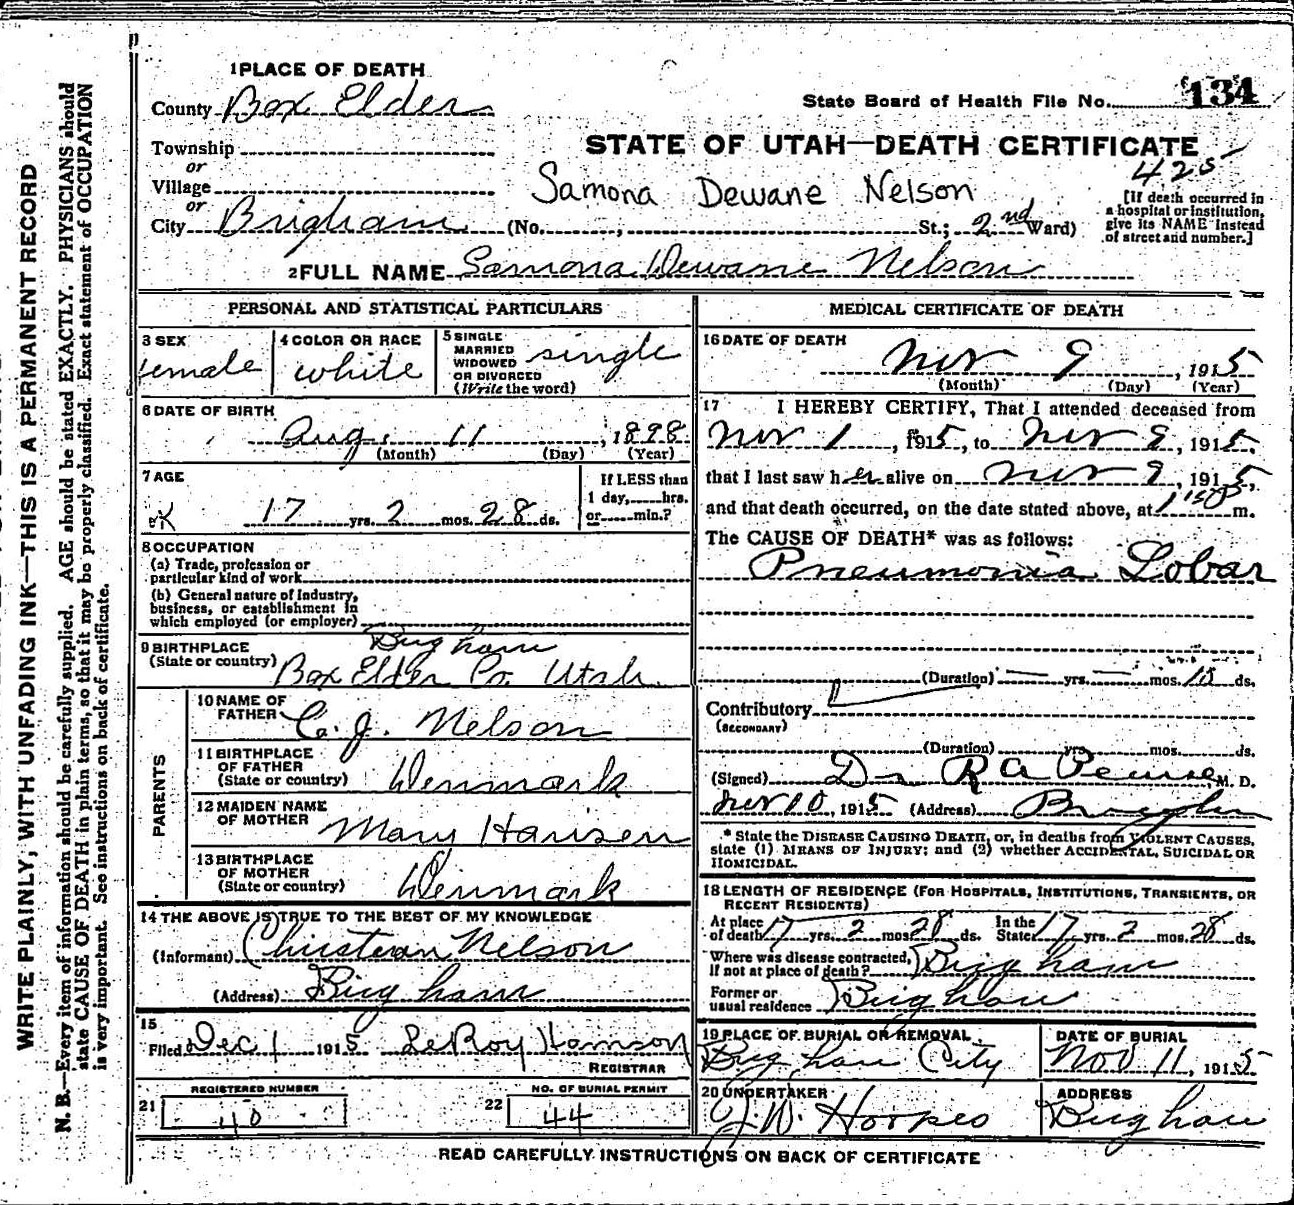 1 PLACE OF DEATH
County Box Elder
State Board of Health File No. 134
Township
or
Village
or
City Brigham (No. , St.; 2nd Ward)
STATE OF UTAH—DEATH CERTIFICATE
425
Samona Dewane Nelson
[If death occurred in
a hospital or institution,
give its NAME instead
of street and number.]
2 FULL NAME Samona Dewane Nelson
PERSONAL AND STATISTICAL PARTICULARS
3 SEX
female
4 COLOR OR RACE
white
5 SINGLE
MARRIED
WIDOWED
OR DIVORCED
(Write the word)
single
6 DATE OF BIRTH
Aug. 11, 1898
(Month) (Day) (Year)
7 AGE
17 yrs. 2 mos. 28 ds.
If LESS than
1 day, hrs.
or min.?
8 OCCUPATION
(a) Trade, profession or
particular kind of work
(b) General nature of Industry,
business, or establishment in
which employed (or employer)
9 BIRTHPLACE
(State or country)
Brigham
Box Elder Co. Utah
PARENTS
10 NAME OF
FATHER
C. J. Nelson
11 BIRTHPLACE
OF FATHER
(State or country)
Denmark
12 MAIDEN NAME
OF MOTHER
Mary Hansen
13 BIRTHPLACE
OF MOTHER
(State or country)
Denmark
14 THE ABOVE IS TRUE TO THE BEST OF MY KNOWLEDGE
(Informant) Christean Nelson
(Address) Brigham
15
Filed Dec 1 1915 LeRoy
REGISTRAR
REGISTERED NUMBER
21 40
NO. OF BURIAL PERMIT
22 44
MEDICAL CERTIFICATE OF DEATH
16 DATE OF DEATH
Nov 9, 1915
(Month) (Day) (Year)
17 I HEREBY CERTIFY, That I attended deceased from
Nov 1, 1915, to Nov 9, 1915,
that I last saw her alive on Nov 9, 1915,
and that death occurred, on the date stated above, at m.
The CAUSE OF DEATH* was as follows:
Pneumonia Lobar
(Duration) — yrs. — mos. ds.
Contributory
(SECONDARY)
(Duration) yrs. mos. ds.
(Signed) Dr R A Pearse, M. D.
Nov 10, 1915 (Address) Brigham
* State the DISEASE CAUSING DEATH, or, in deaths from VIOLENT CAUSES,
state (1) MEANS OF INJURY; and (2) whether ACCIDENTAL, SUICIDAL OR
HOMICIDAL.
18 LENGTH OF RESIDENCE (FOR HOSPITALS, INSTITUTIONS, TRANSIENTS, OR
RECENT RESIDENTS)
At place
of death 17 yrs. 2 mos. 28 ds. In the
State 17 yrs. 2 mos. 28 ds.
Where was disease contracted,
If not at place of death? Brigham
Former or
usual residence Brigham
19 PLACE OF BURIAL OR REMOVAL
Brigham City
DATE OF BURIAL
Nov 11, 1915
20 UNDERTAKER
J. W. Hoopes
ADDRESS
Brigham
READ CAREFULLY INSTRUCTIONS ON BACK OF CERTIFICATE
WRITE PLAINLY, WITH UNFADING INK—THIS IS A PERMANENT RECORD
N. B.—Every item of information should be carefully supplied. AGE should be stated EXACTLY. PHYSICIANS should
state CAUSE OF DEATH in plain terms, so that it may be properly classified. Exact statement of OCCUPATION
is very important. See instructions on back of certificate.